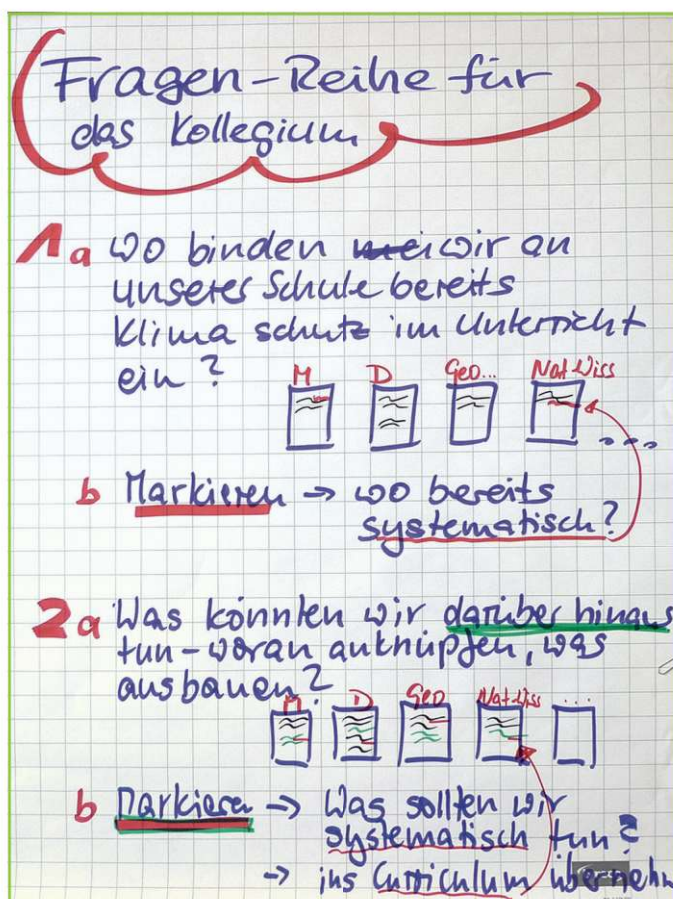 Fragen-Reihe für
das Kollegium
1a wo binden wir an
unserer Schule bereits
Klimaschutz im Unterricht
ein?
M D Geo... NatWiss
....
b Markieren → wo bereits
systematisch?
2a Was könnten wir darüber hinaus
tun - woran anknüpfen, was
ausbauen?
M D Geo NatWiss ...
b Markieren → Was sollten wir
systematisch tun?
→ ins Curriculum übernehm